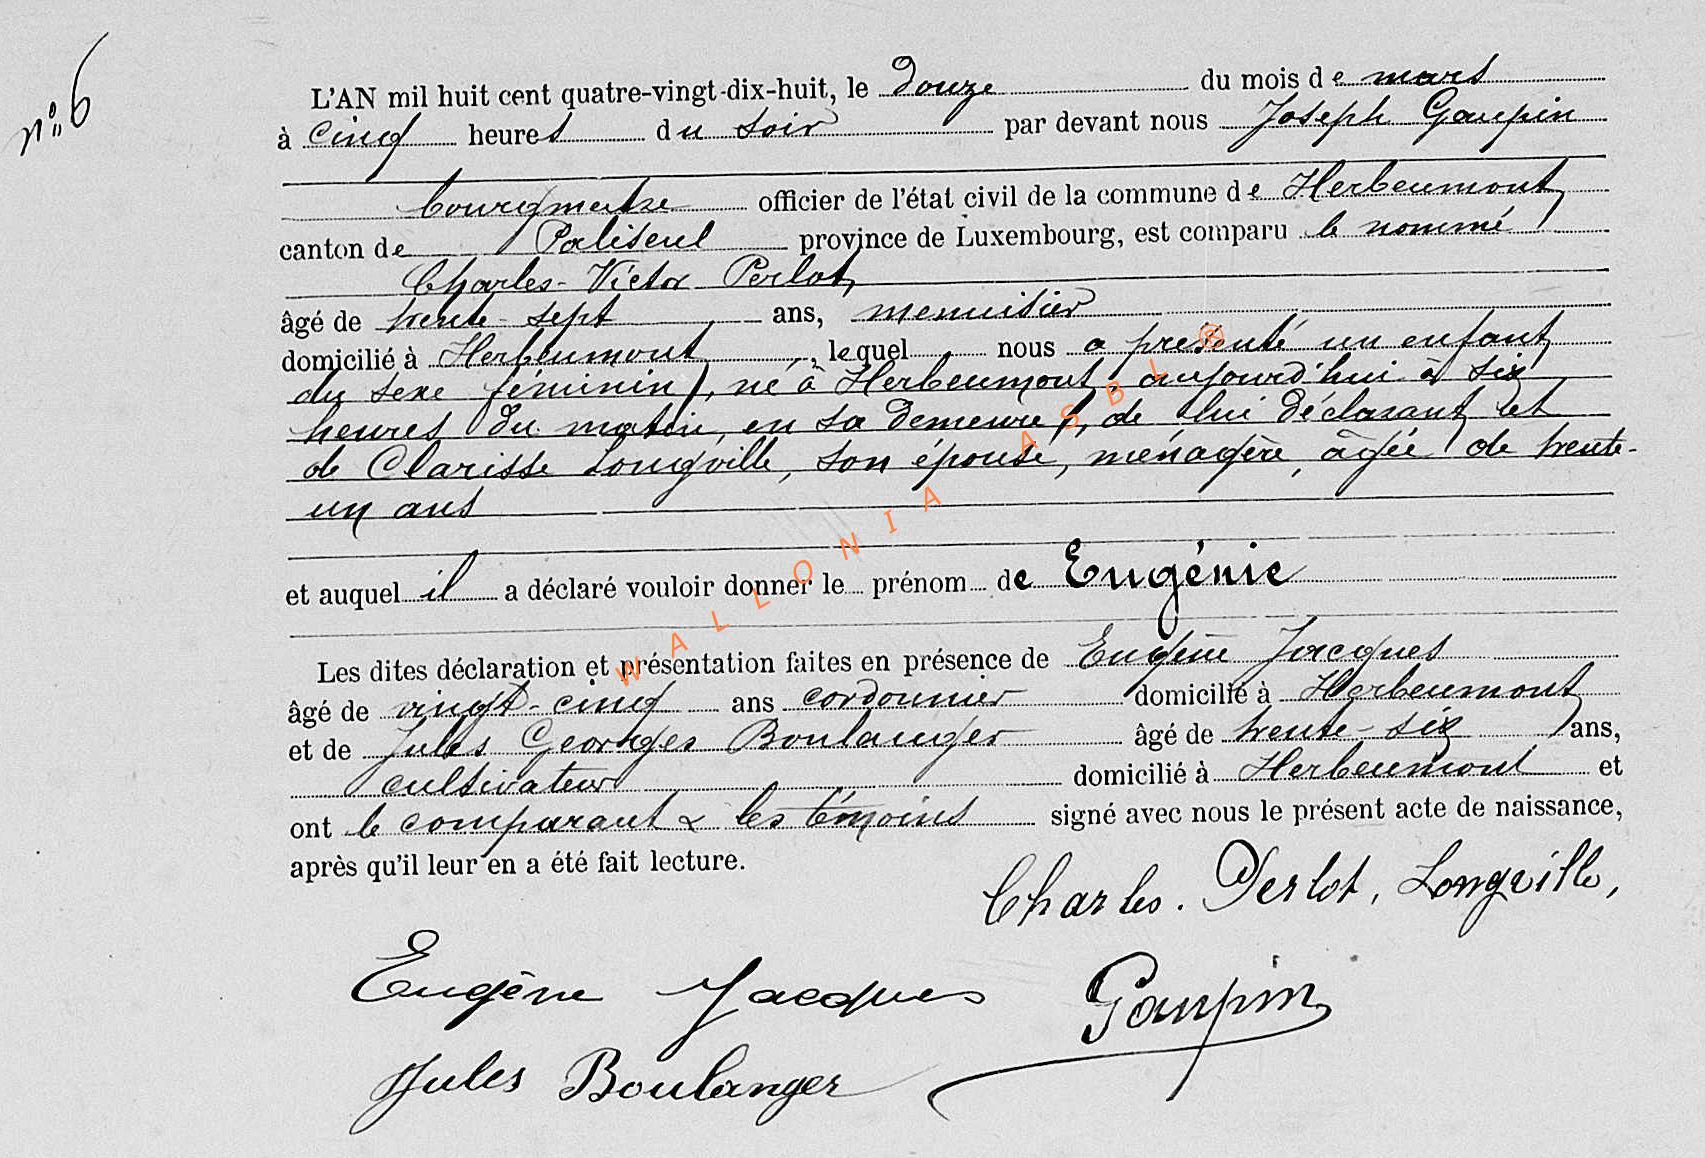 n° 6
L'AN mil huit cent quatre-vingt-dix-huit, le douze du mois de mars
à cinq heures du soir par devant nous Joseph Goupin
bourgmestre officier de l'état civil de la commune de Herbeumont
canton de Paliseul province de Luxembourg, est comparu le nommé
Charles-Victor Perlot,
âgé de trente-sept ans, menuisier
domicilié à Herbeumont, lequel nous a présenté un enfant
du sexe féminin, né à Herbeumont, aujourd'hui à six
heures du matin, en sa demeure, de lui déclarant et
de Clarisse Longville, son épouse, ménagère, âgée de trente-
un ans
et auquel il a déclaré vouloir donner le prénom de Eugénie
Les dites déclaration et présentation faites en présence de Eugène Jacques
âgé de vingt-cinq ans cordonnier domicilié à Herbeumont
et de Jules Georges Boulanger âgé de trente-six ans,
cultivateur domicilié à Herbeumont et
ont le comparant & les témoins signé avec nous le présent acte de naissance,
après qu'il leur en a été fait lecture.
Charles. Perlot, Longville,
Eugène Jacques Goupin
Jules Boulanger
WALLONIA ASBL ®